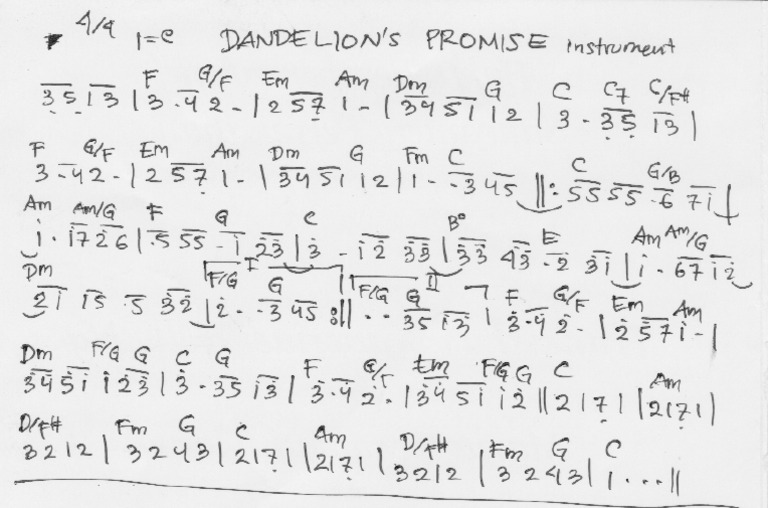 4/4 1=C DANDELION'S PROMISE instrument
F G/F Em Am Dm G C C7 C/F#
3513 | 3 . 42 - | 2 57 1 - | 3451 12 | 3 - 35 13 |
F G/F Em Am Dm G Fm C C G/B
3 - 42 - | 2 57 1 - | 3451 12 | 1 - - 345 ||: 55 55 . 6 71 |
Am Am/G F G C B° E Am Am/G
1 . 1726 | .5 55 - 1 23 | 3 - 12 33 | 33 43 - 2 31 | 1 - 67 12
Dm F/G I G F/G G II F G/F Em Am
21 15 . 5 32 | 2 - - 345 :|| . . 35 13 | 3 - 42 - | 2 571 - |
Dm F/G G C G F G/F Em F/G G C Am
3451 123 | 3 - 35 13 | 3 - 42 . | 34 51 12 || 2171 | 2171 |
D/F# Fm G C Am D/F# Fm G C
3212 | 3243 | 2171 | 2171 | 3212 | 3243 | 1 . . . ||